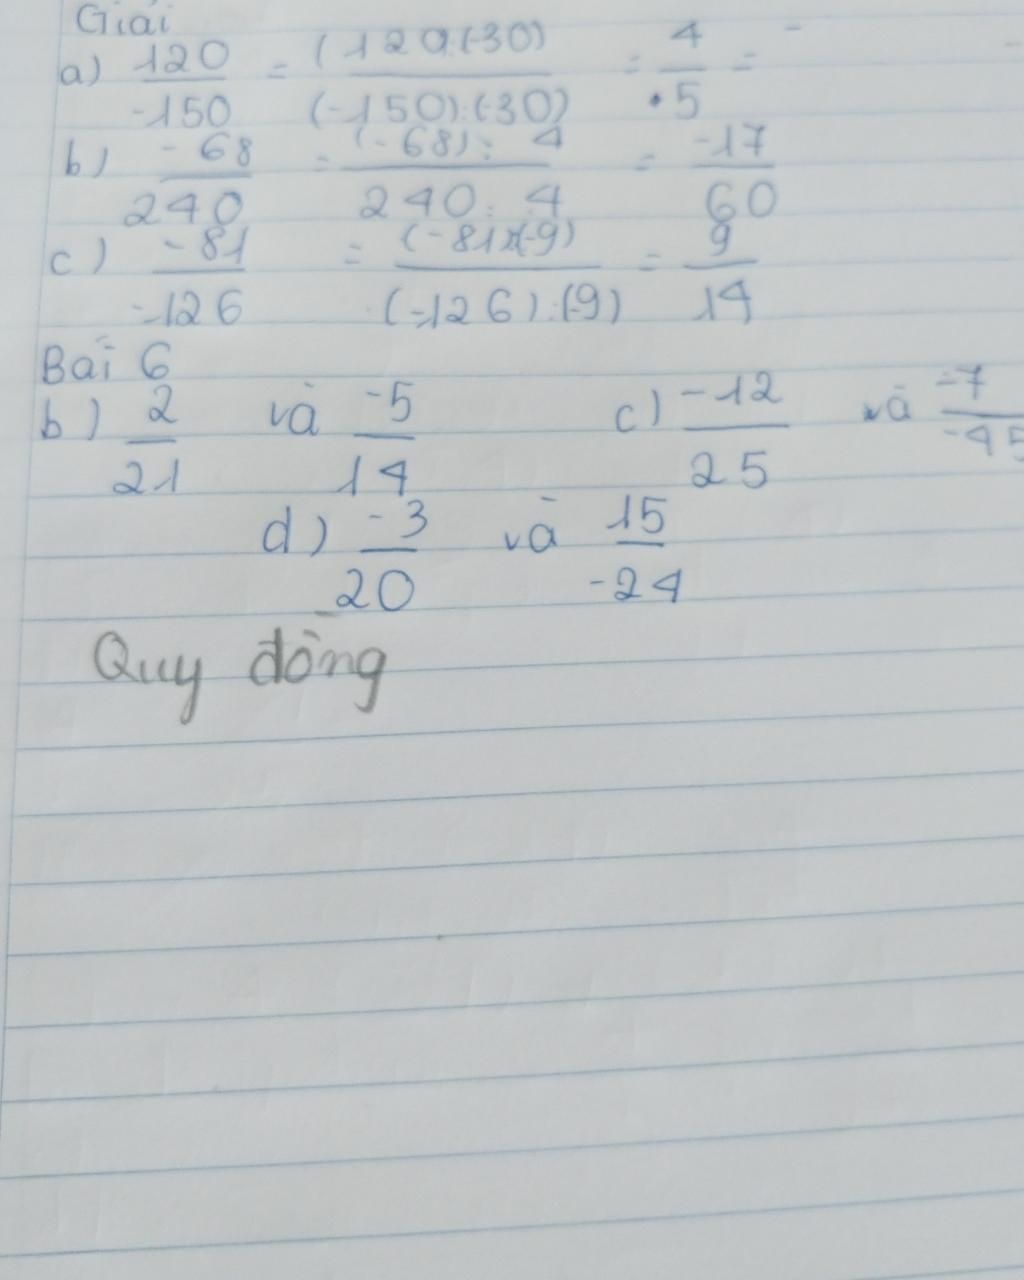 Giải
a) 120/-150 = (120:(-30)/(-150):(-30) = 4/5 = -
b) -68/240 = (-68): 4/240: 4 = -17/60
c) -81/-126 = (-81):(-9)/(-126):(-9) = 9/14
Bài 6
b) 2/21 và -5/14 c) -12/25 và -7/-45
d) -3/20 và 15/-24
Quy đồng